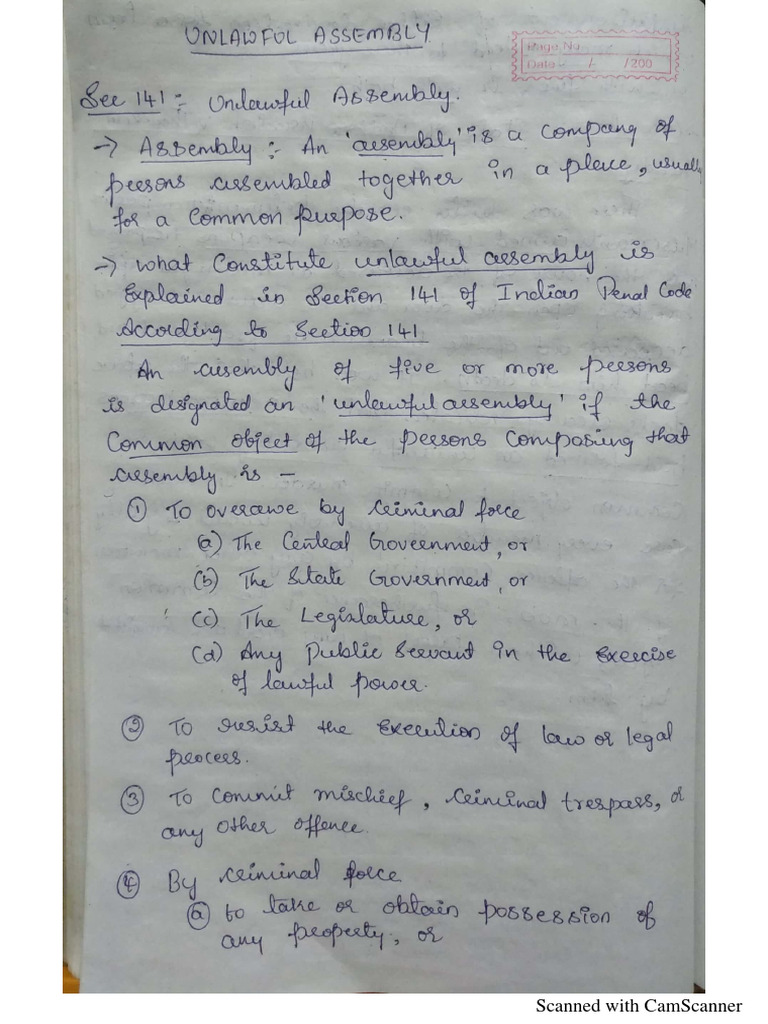 UNLAWFUL ASSEMBLY
Page No
Date - / /200
Sec 141 :- Unlawful Assembly.
→ Assembly :- An 'assembly' is a company of
persons assembled together in a place, usually
for a common purpose.
→ What Constitute unlawful assembly is
Explained in Section 141 of Indian Penal Code
According to Section 141
An assembly of five or more persons
is designated an 'unlawful assembly' if the
Common object of the persons composing that
assembly is -
① To overawe by criminal force
(a) The Central Government, or
(b) The State Government, or
(c) The Legislature, or
(d) Any Public Servant in the exercise
of lawful power.
② To resist the execution of law or legal
process.
③ To commit mischief, criminal trespass, or
any other offence.
④ By criminal force
ⓐ to take or obtain possession of
any property, or
Scanned with CamScanner